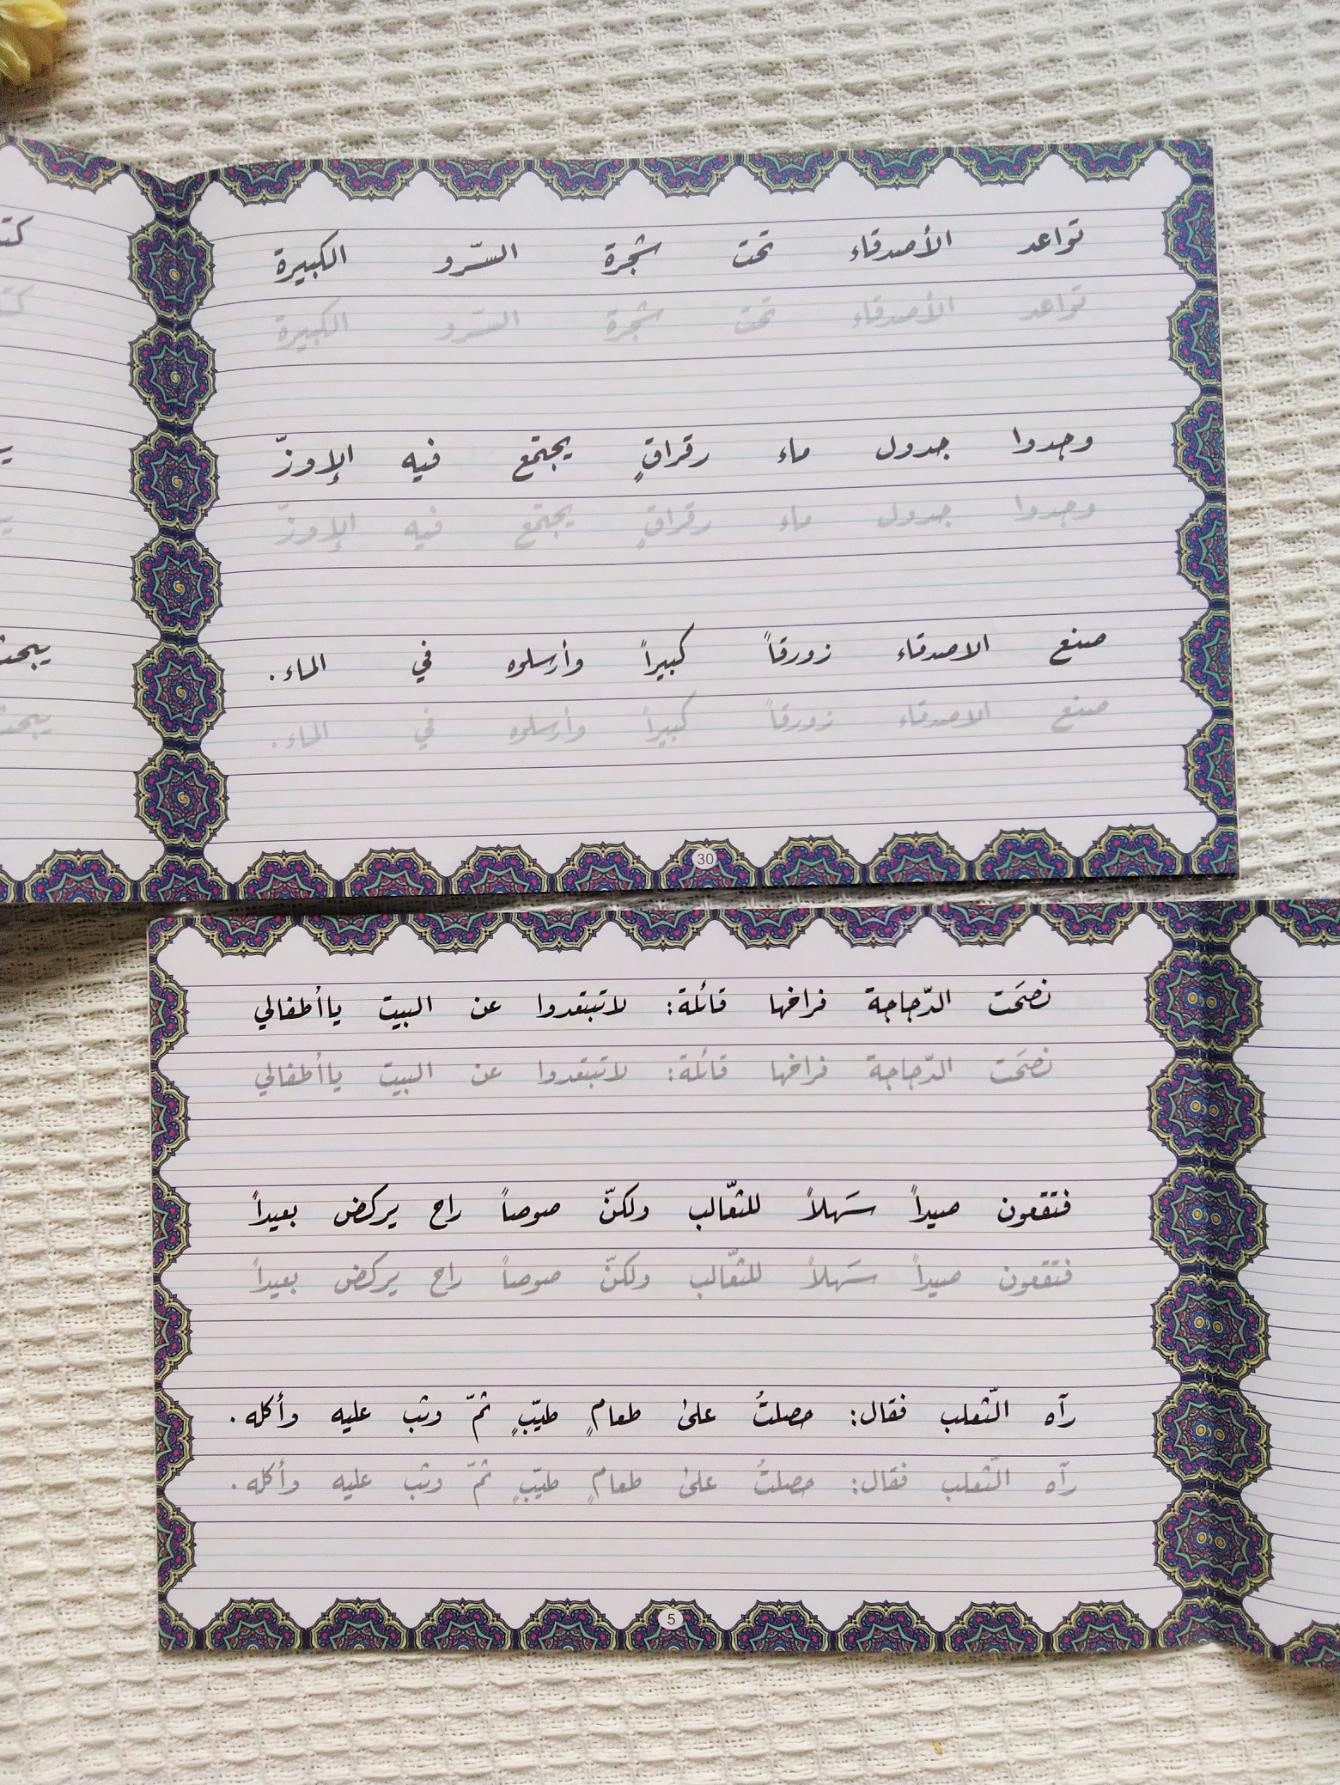 تواعد الأصدقاء تحت شجرة السّرو الكبيرة
تواعد الأصدقاء تحت شجرة السّرو الكبيرة
وجدوا جدول ماء رقراقٍ يجتمع فيه الإوزّ
وجدوا جدول ماء رقراقٍ يجتمع فيه الإوزّ
صنع الاصدقاء زورقاً كبيراً وأرسلوه في الماء.
صنع الاصدقاء زورقاً كبيراً وأرسلوه في الماء.
30
نصَحَت الدّجاجة فراخها قائلة: لاتبتعدوا عن البيت ياأطفالي
نصَحَت الدّجاجة فراخها قائلة: لاتبتعدوا عن البيت ياأطفالي
فتقعون صيداً سَهلاً للثّعالب ولكنّ صوصاً راح يركض بعيداً
فتقعون صيداً سَهلاً للثّعالب ولكنّ صوصاً راح يركض بعيداً
رآه الثّعلب فقال: حصلتُ على طعامٍ طيّبٍ ثمّ وثب عليه وأكله.
رآه الثّعلب فقال: حصلتُ على طعامٍ طيّبٍ ثمّ وثب عليه وأكله.
5